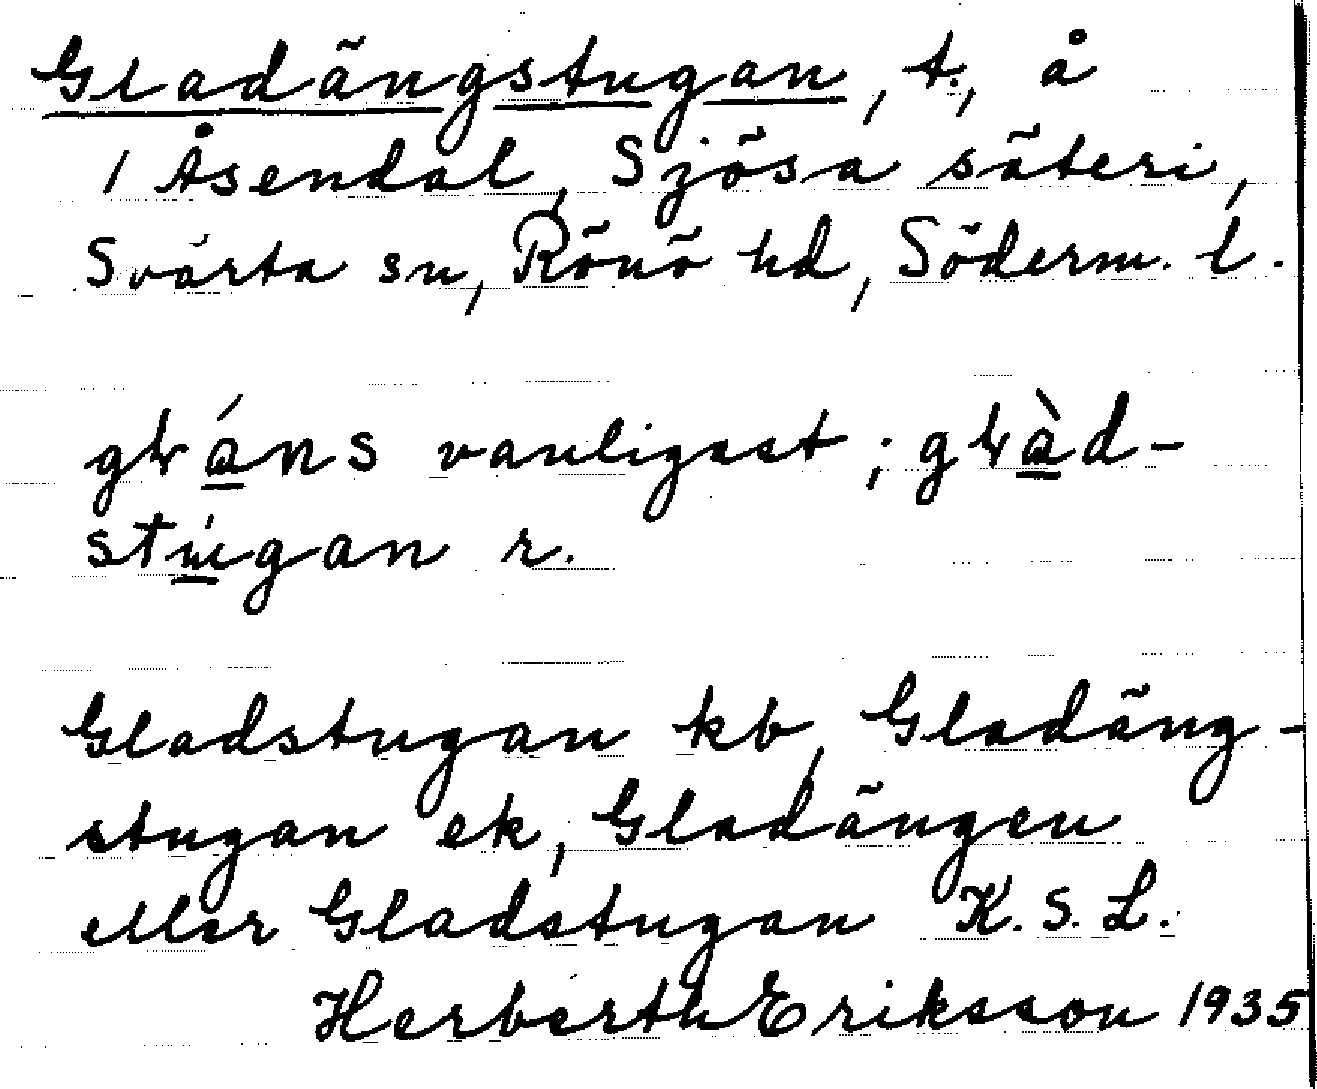 Gladängstugan, t., å
1 Åsendal, Sjösa säteri,
Svärta sn, Rönö hd, Söderm. l.
vanligast;
r.
Gladstugan kb, Gladäng-
stugan ek, Gladängen
eller Gladstugan K. S. L.
Herberth Eriksson 1935